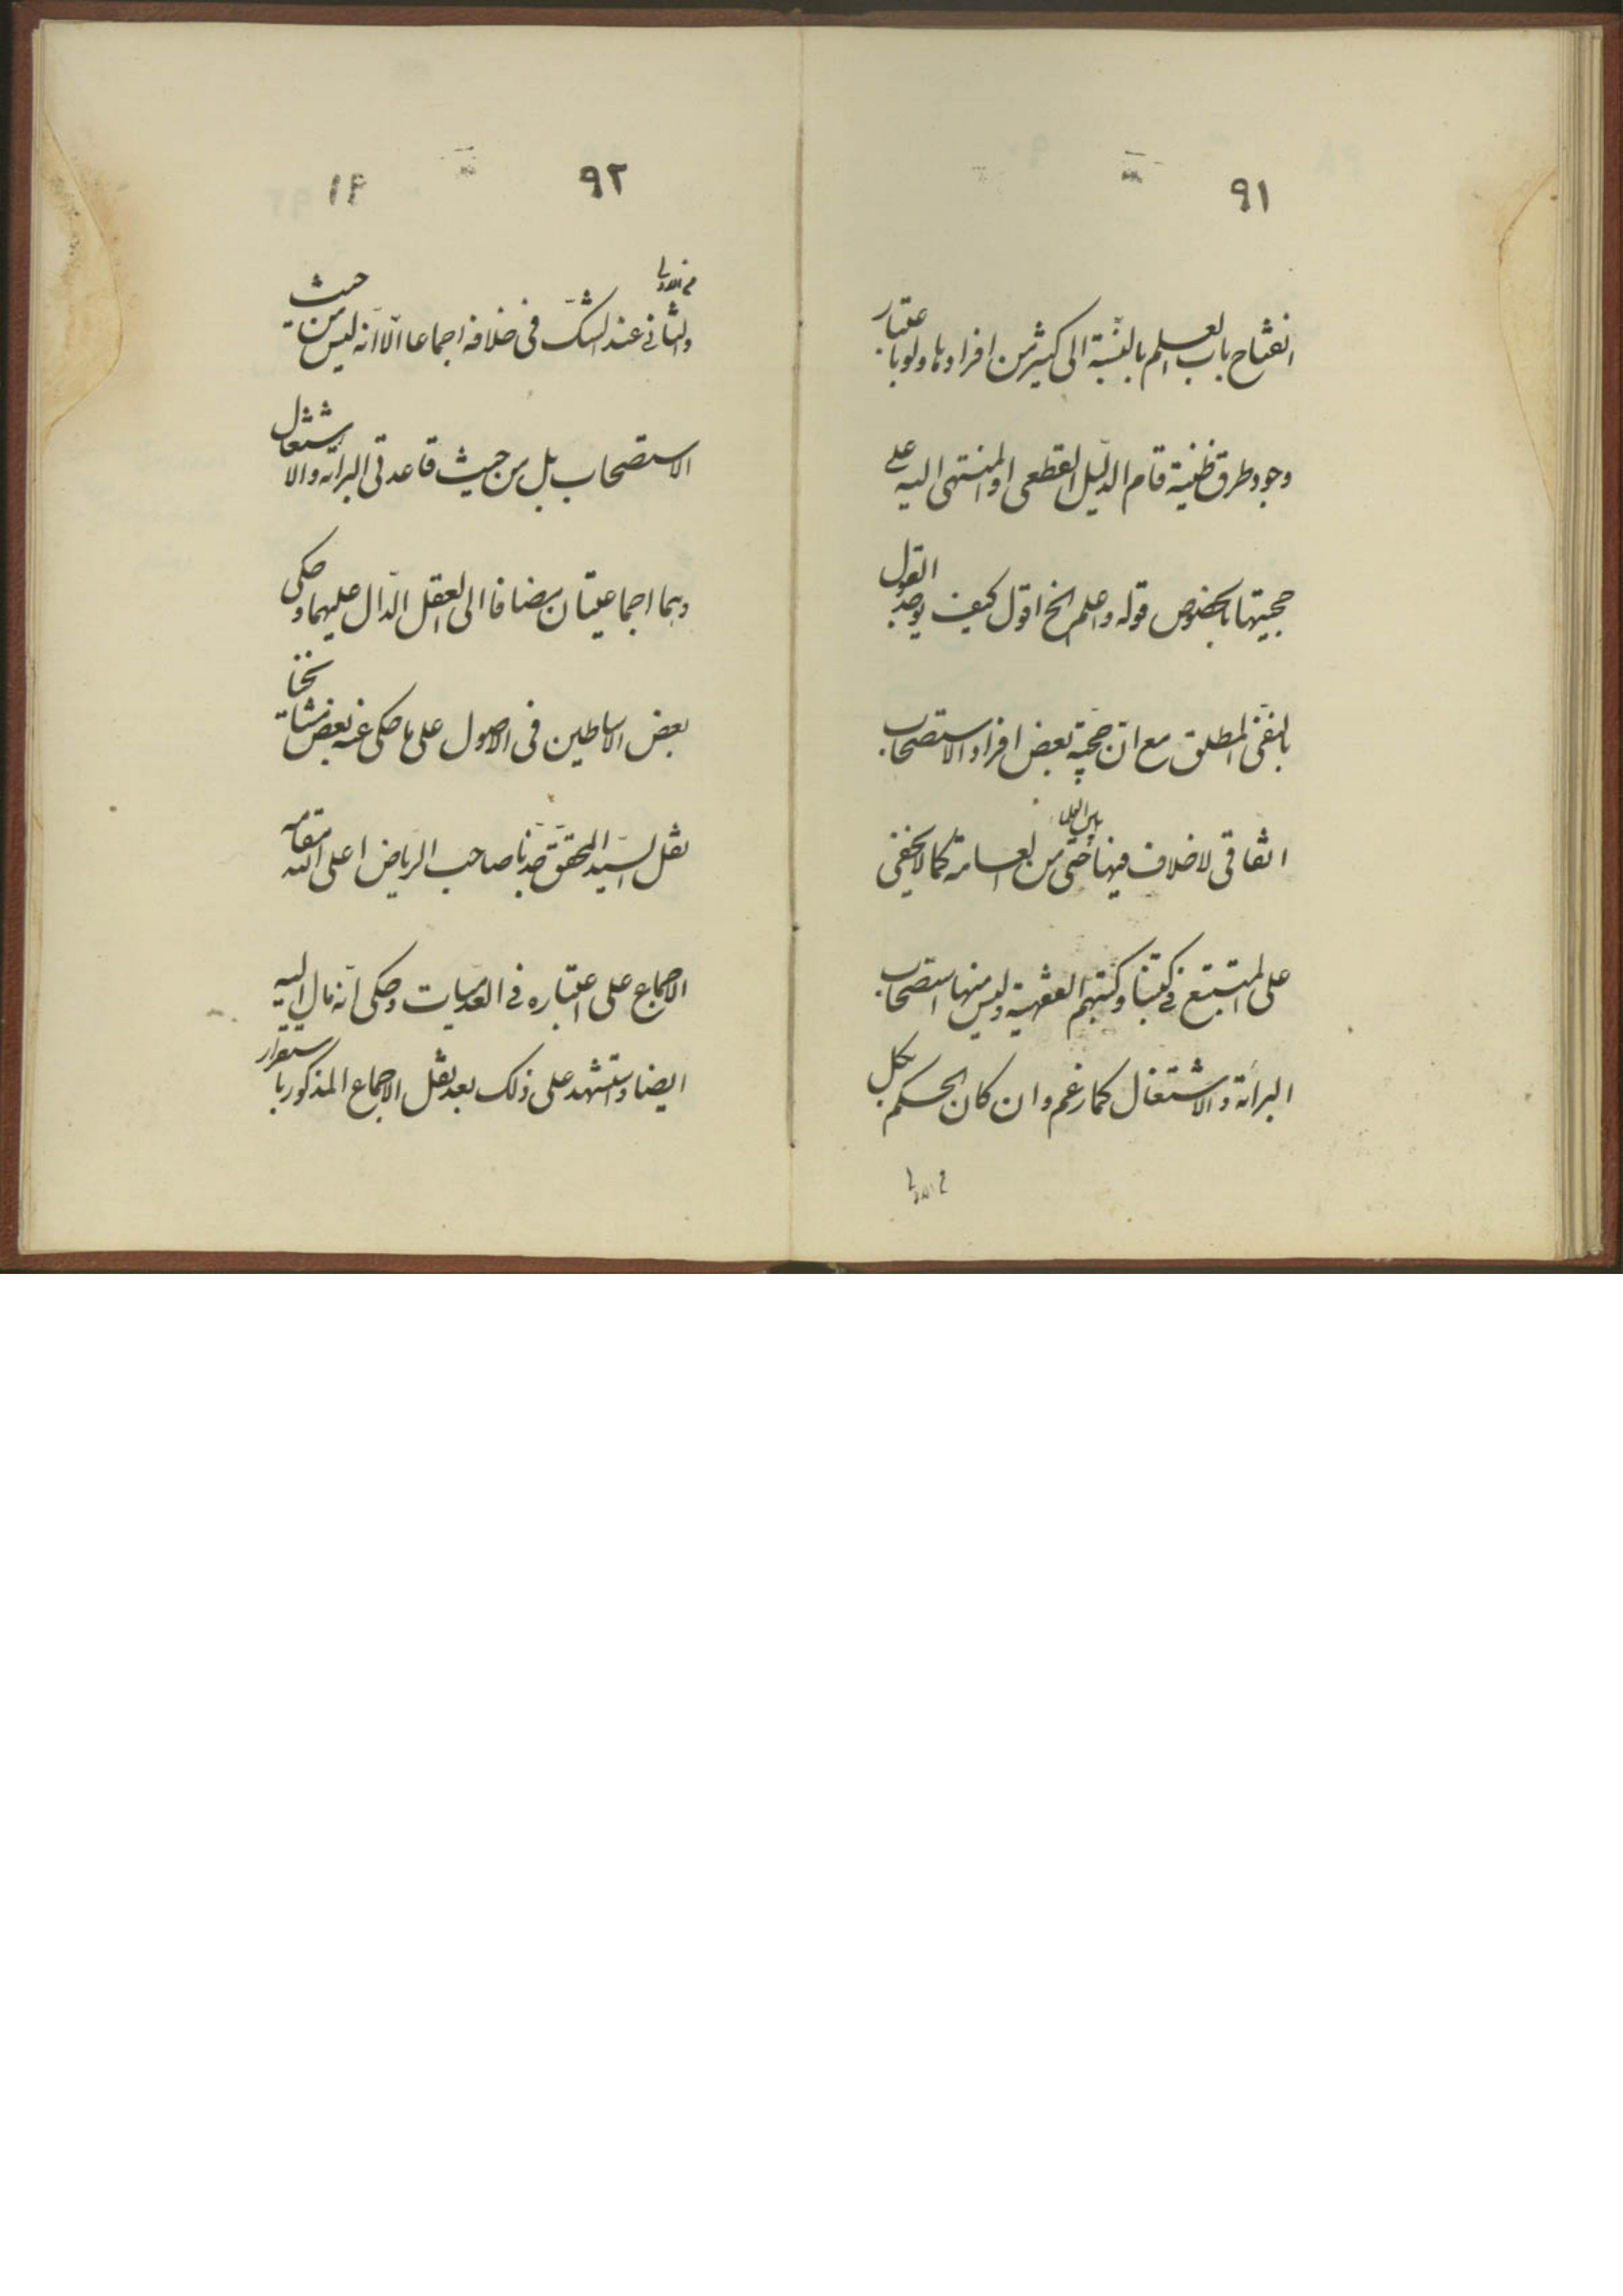 ٩١
انفتاح باب العلم بالنسبة الى كثير من افرادها ولو باعتبار
وجود طرق ظنية قام الدليل القطعى او المنتهى اليه على
حجيتها بالخصوص قوله واعلم الخ اقول كيف يوجد القول
بالنفى المطلق مع انّ حجيّة بعض افراد الاستصحاب
اتفاقى لا خلاف فيها حتى من العامة كما لا يخفى
على المتتبع فى كتبنا وكتبهم الفقهية وليس منها استصحاب
البرائة والاشتغال كما زعم وان كان الحكم بكل
٩٢
والثانى عند الشكّ فى خلافه اجماعا الّا انّه ليس من حيث
الاستصحاب بل من حيث قاعدتى البرائة والاشتغال
وهما اجماعيتان مضافا الى العقل الدّال عليهما وحكى
بعض الاساطين فى الاصول على ما حكى عنه بعض مشايخنا
نقل السيّد المحقق جدّنا صاحب الرياض اعلى الله مقامه
الاجماع على اعتباره فى العدميات وحكى انّه مال اليه
ايضا واستشهد على ذلك بعد نقل الاجماع المذكور باستقرار